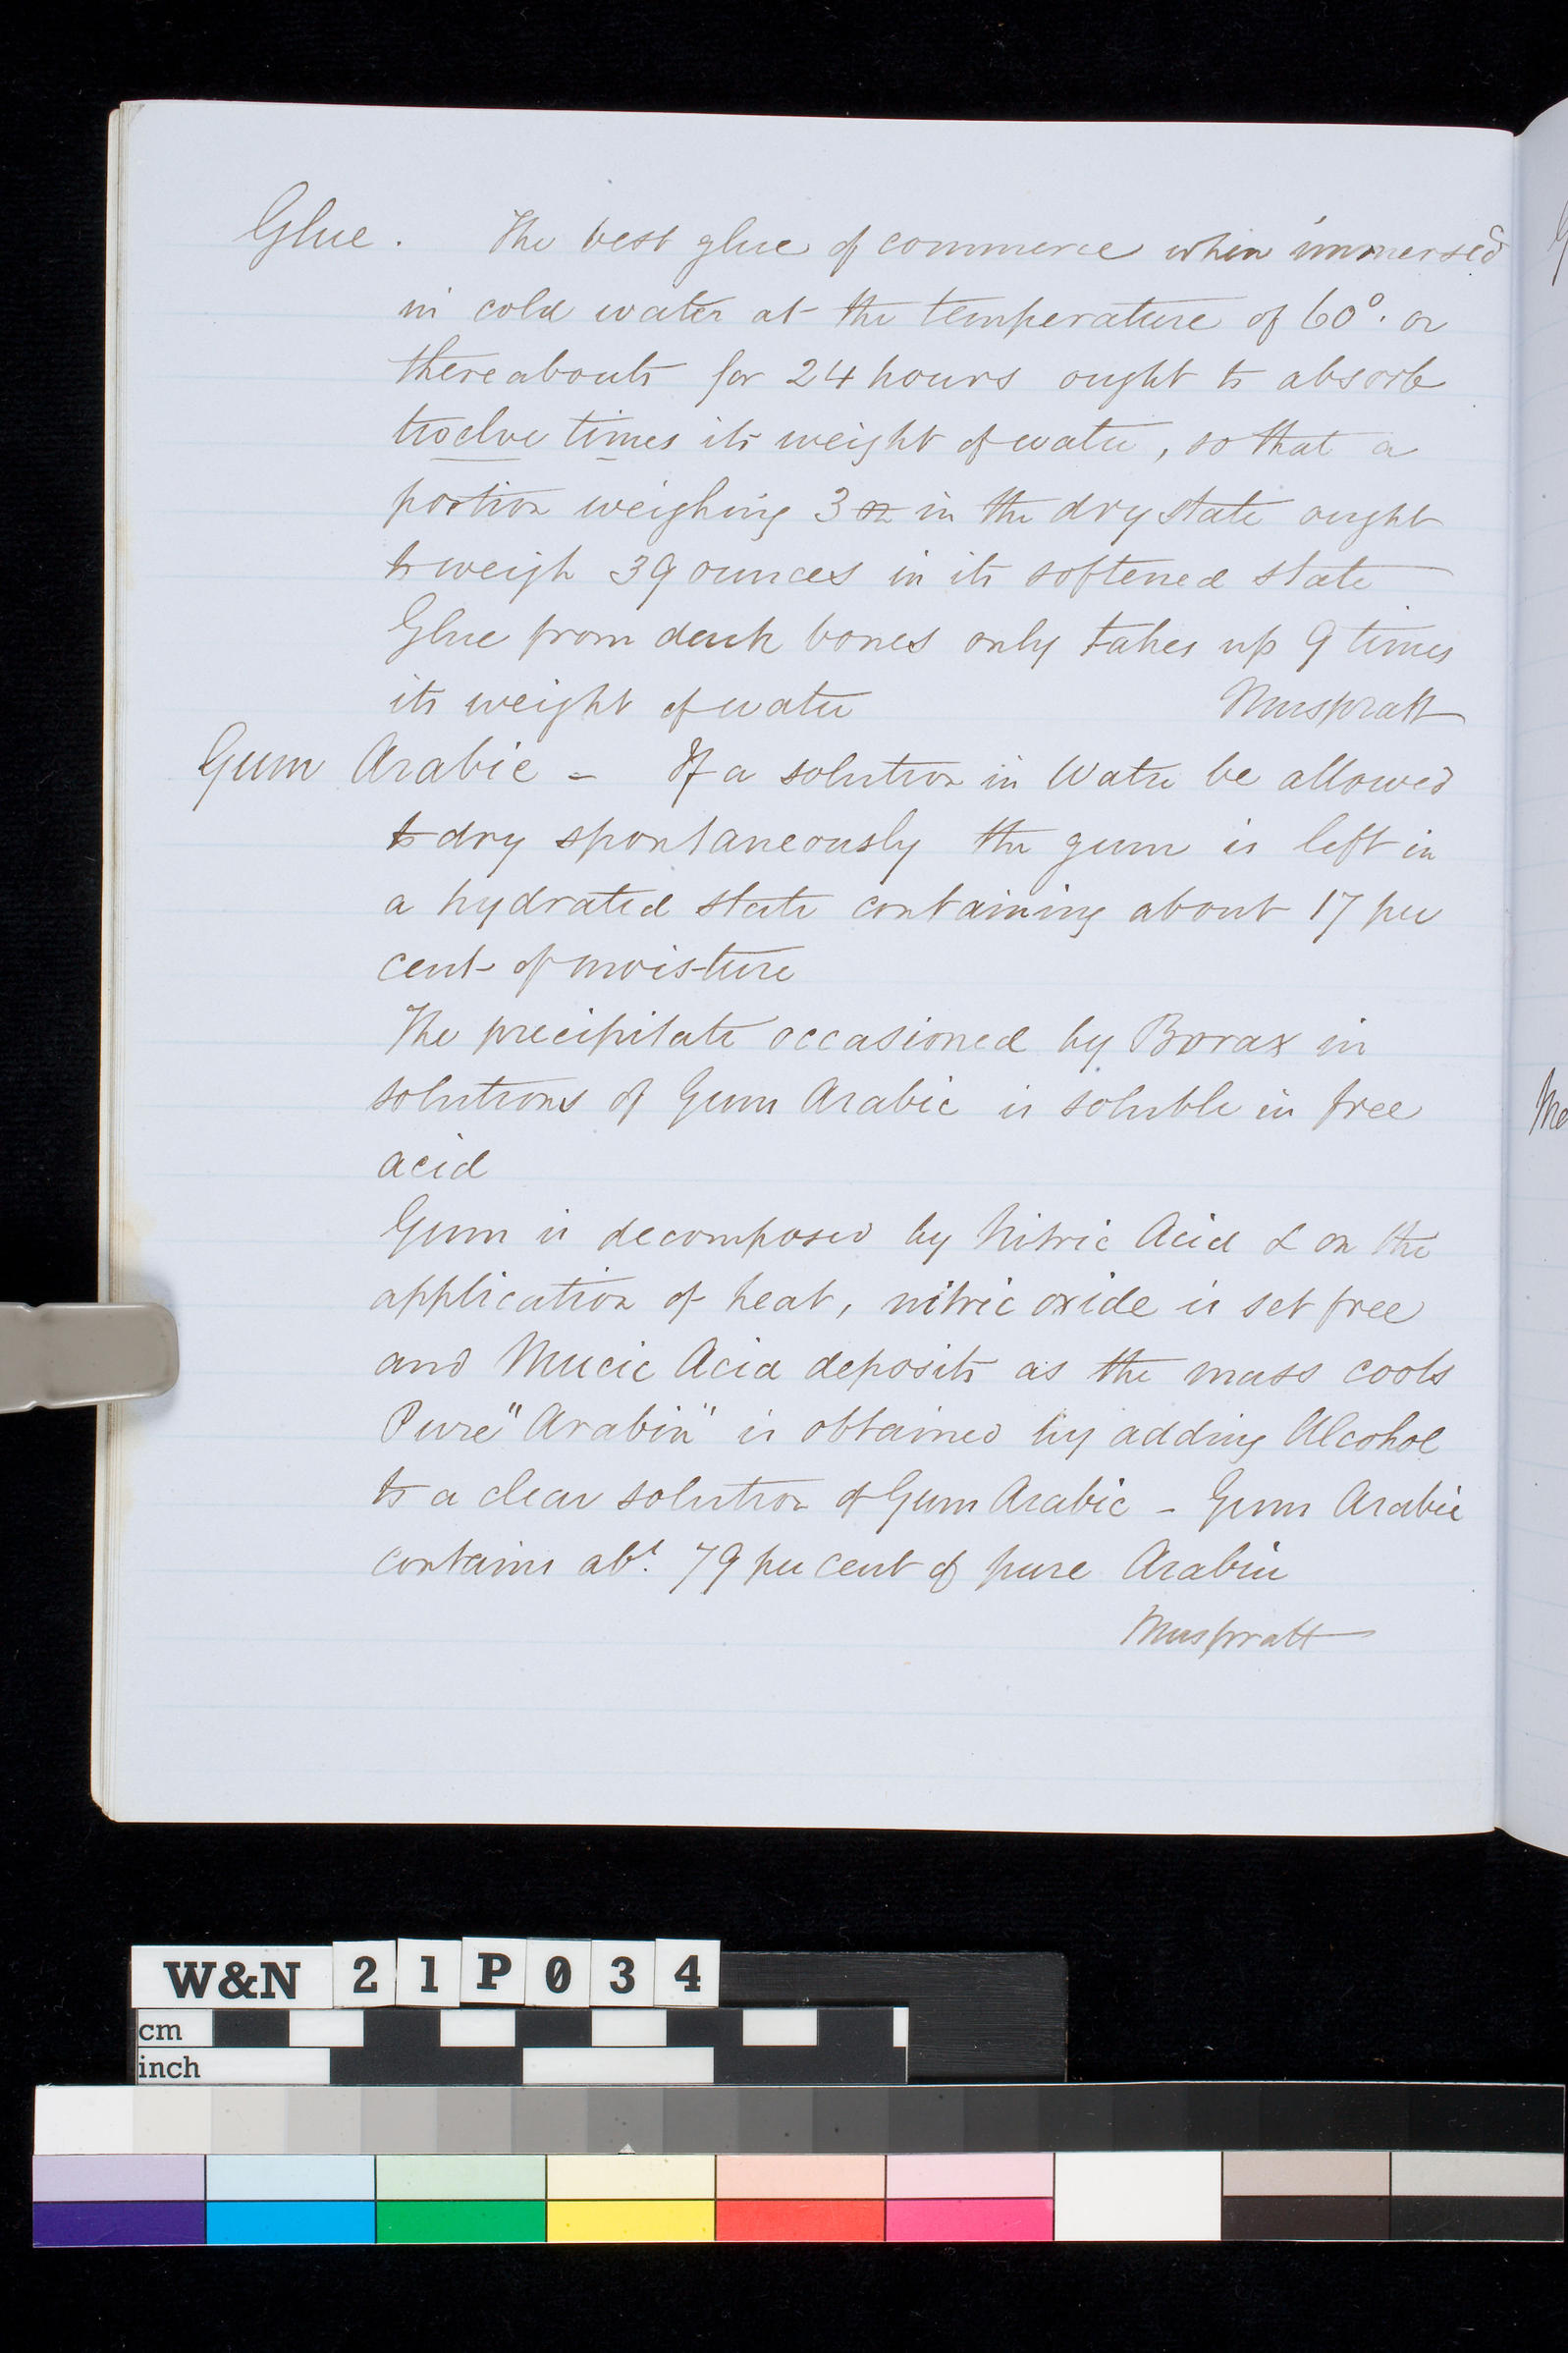 Glue. The best glue of commerce when immersed
in cold water at the temperature of 60°. or
thereabouts for 24 hours ought to absorb
twelve times its weight of water, so that a
portion weighing 3 oz in the dry state ought
to weigh 39 ounces in its softened state
Glue from bones only takes up 9 times
its weight of water Muspratt
Gum Arabic - If a solution in Water be allowed
to dry spontaneously the gum is left in
a hydrated state containing about 17 per
cent of moisture
The precipitate occasioned by Borax in
solutions of Gum Arabic is soluble in free
acid
Gum is decomposed by Nitric Acid & on the
application of heat, nitric oxide is set free
and Mucic Acid deposits as the mass cools
Pure "Arabin" is obtained by adding Alcohol
to a clear solution of Gum Arabic - Gum Arabic
contains abt. 79 per cent of pure Arabin
Muspratt
W&N 21P034
cm
inch